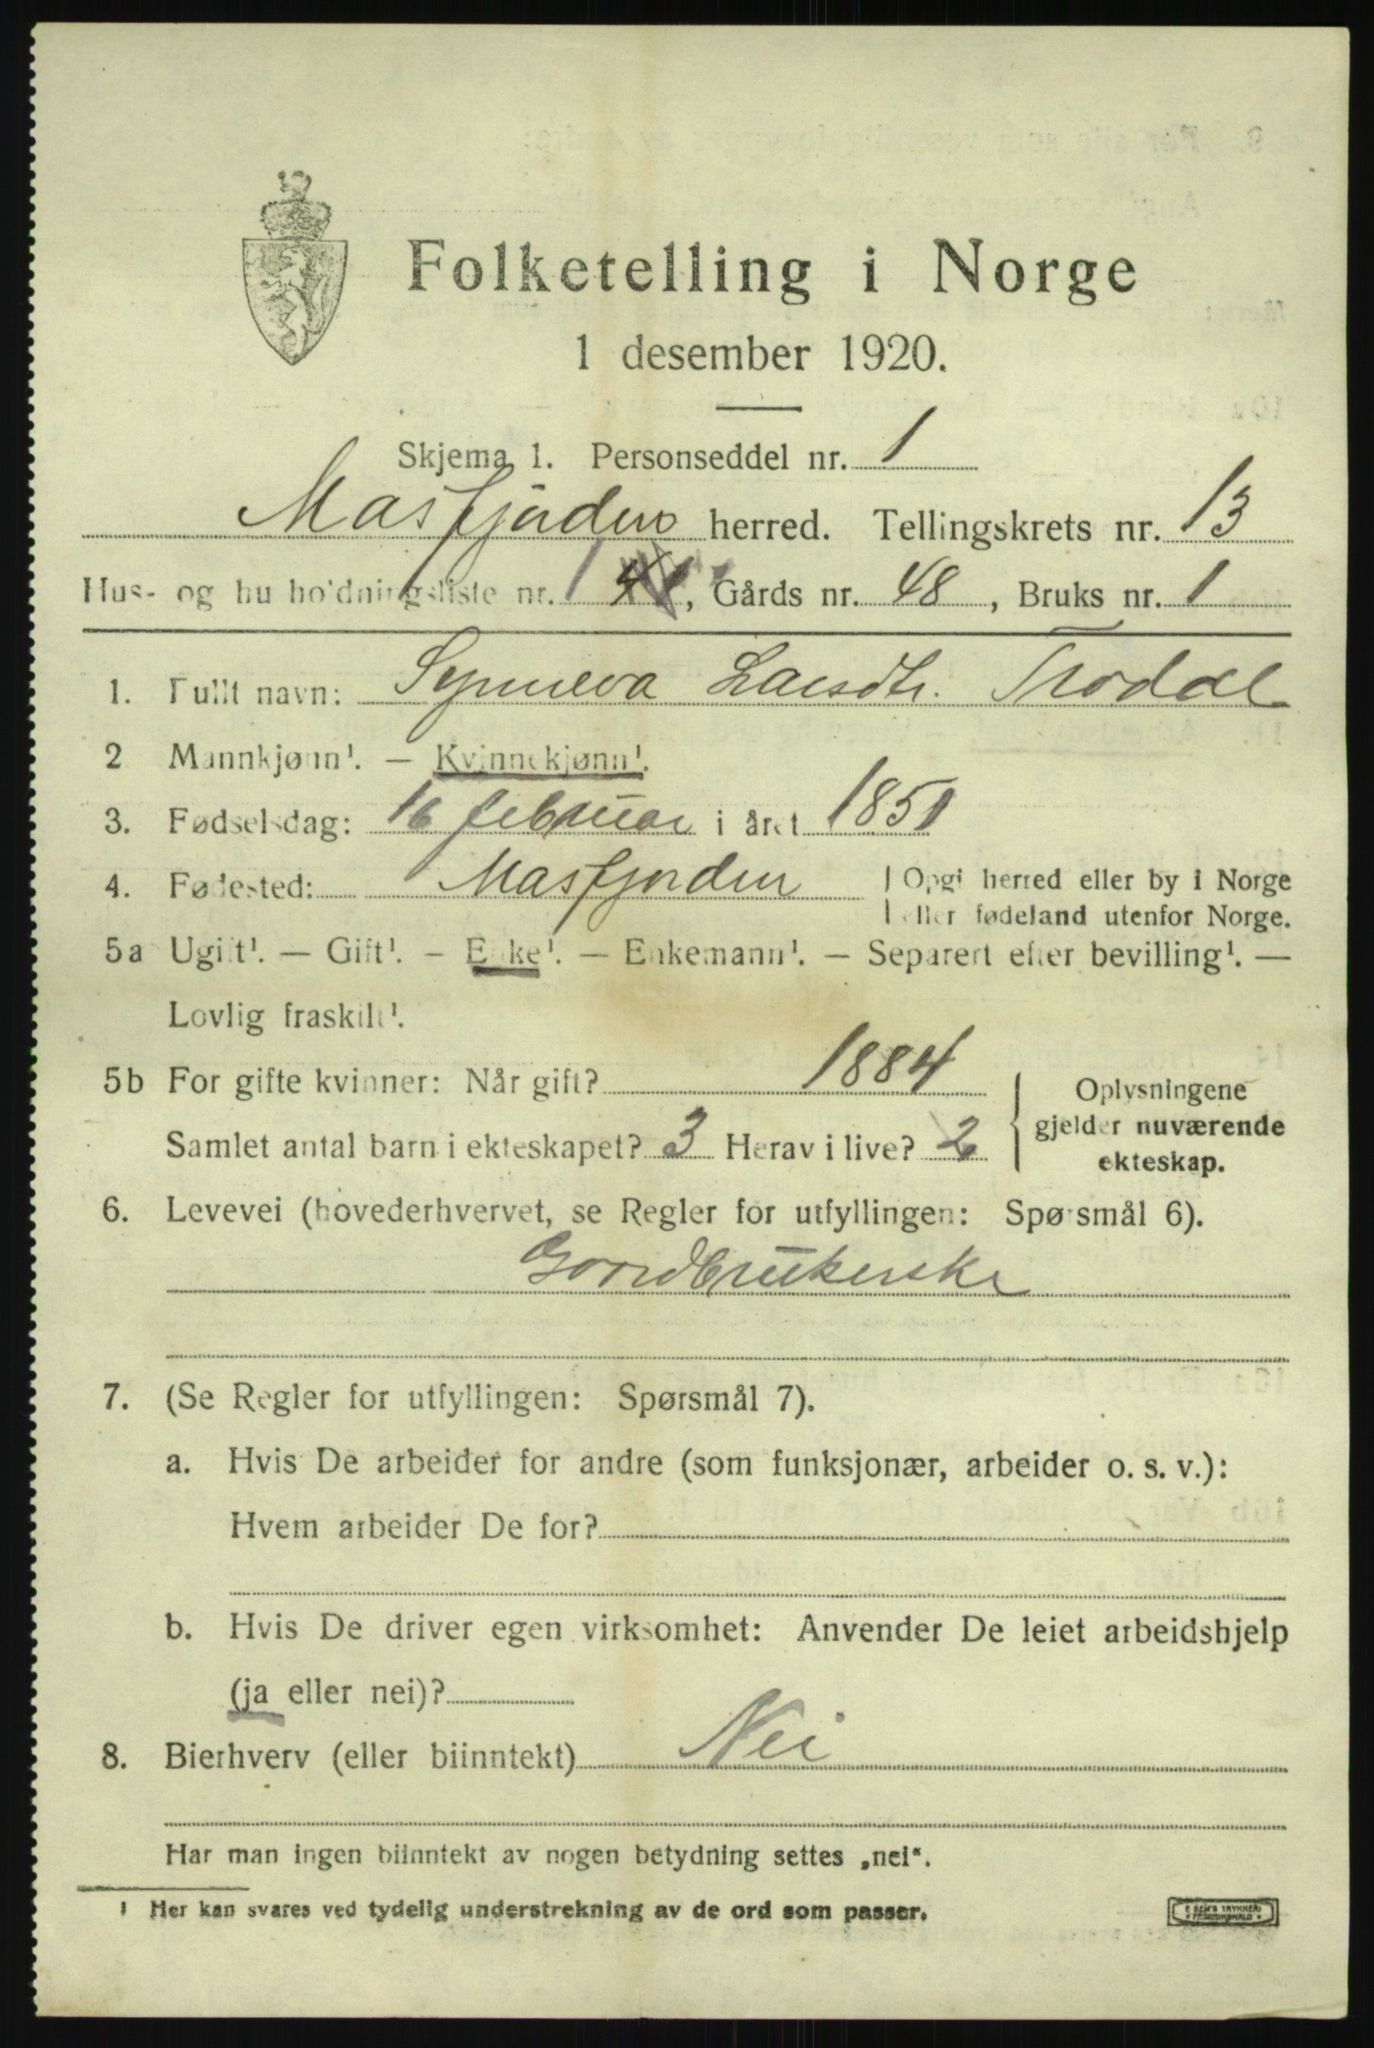 Folketelling i Norge
1 desember 1920.
Skjema 1. Personseddel nr. 1
Masfjorden herred. Tellingskrets nr. 13
Hus- og hu ho'dningsliste nr. 1 41, Gårds nr. 48, Bruks nr. 1
1. Fullt navn: Synneva Larsdtr. Trodal
2 Mannkjønn¹. — Kvinnekjønn¹.
3. Fødselsdag: 16 februar i året 1851
4. Fødested: Masfjorden Opgi herred eller by i Norge
eller fødeland utenfor Norge.
5a Ugift¹. — Gift¹. — Enke¹. — Enkemann¹. — Separert efter bevilling¹. —
Lovlig fraskilt¹.
5b For gifte kvinner: Når gift? 1884
Samlet antal barn i ekteskapet? 3 Herav i live? 2
Oplysningene
gjelder nuværende
ekteskap.
6. Levevei (hovederhvervet, se Regler for utfyllingen: Spørsmål 6).
Goordbrukerske
7. (Se Regler for utfyllingen: Spørsmål 7).
a. Hvis De arbeider for andre (som funksjonær, arbeider o. s. v.):
Hvem arbeider De for?
b. Hvis De driver egen virksomhet: Anvender De leiet arbeidshjelp
(ja eller nei)?
8. Bierhverv (eller biinntekt) Nei
Har man ingen biinntekt av nogen betydning settes „nei“.
¹ Her kan svares ved tydelig understrekning av de ord som passer.